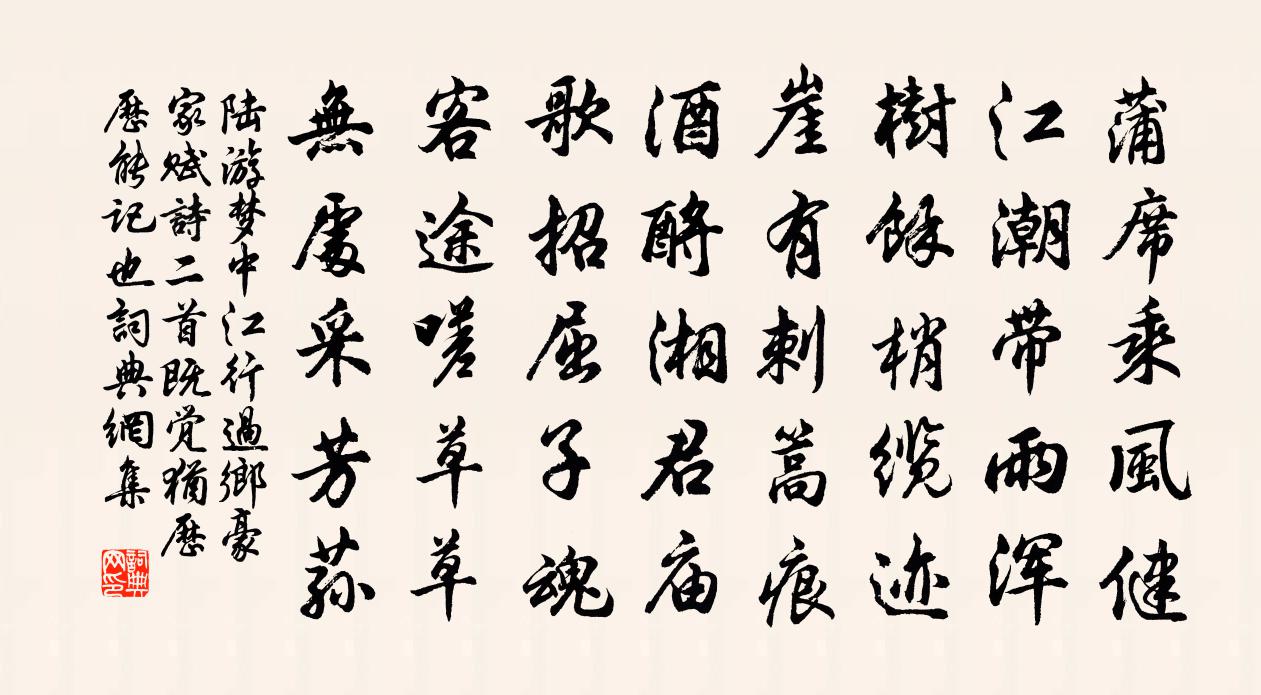 蒲席乘風健
江潮带雨浑
樹餘梢缆迹
崖有刺蒿痕
酒酹湘君庙
歌招屈子魂
客途嗟草草
無處采芳荪
陆游梦中江行過鄉豪
家赋詩二首既觉猶歷
歷能记也詞典網集
詞典
网印